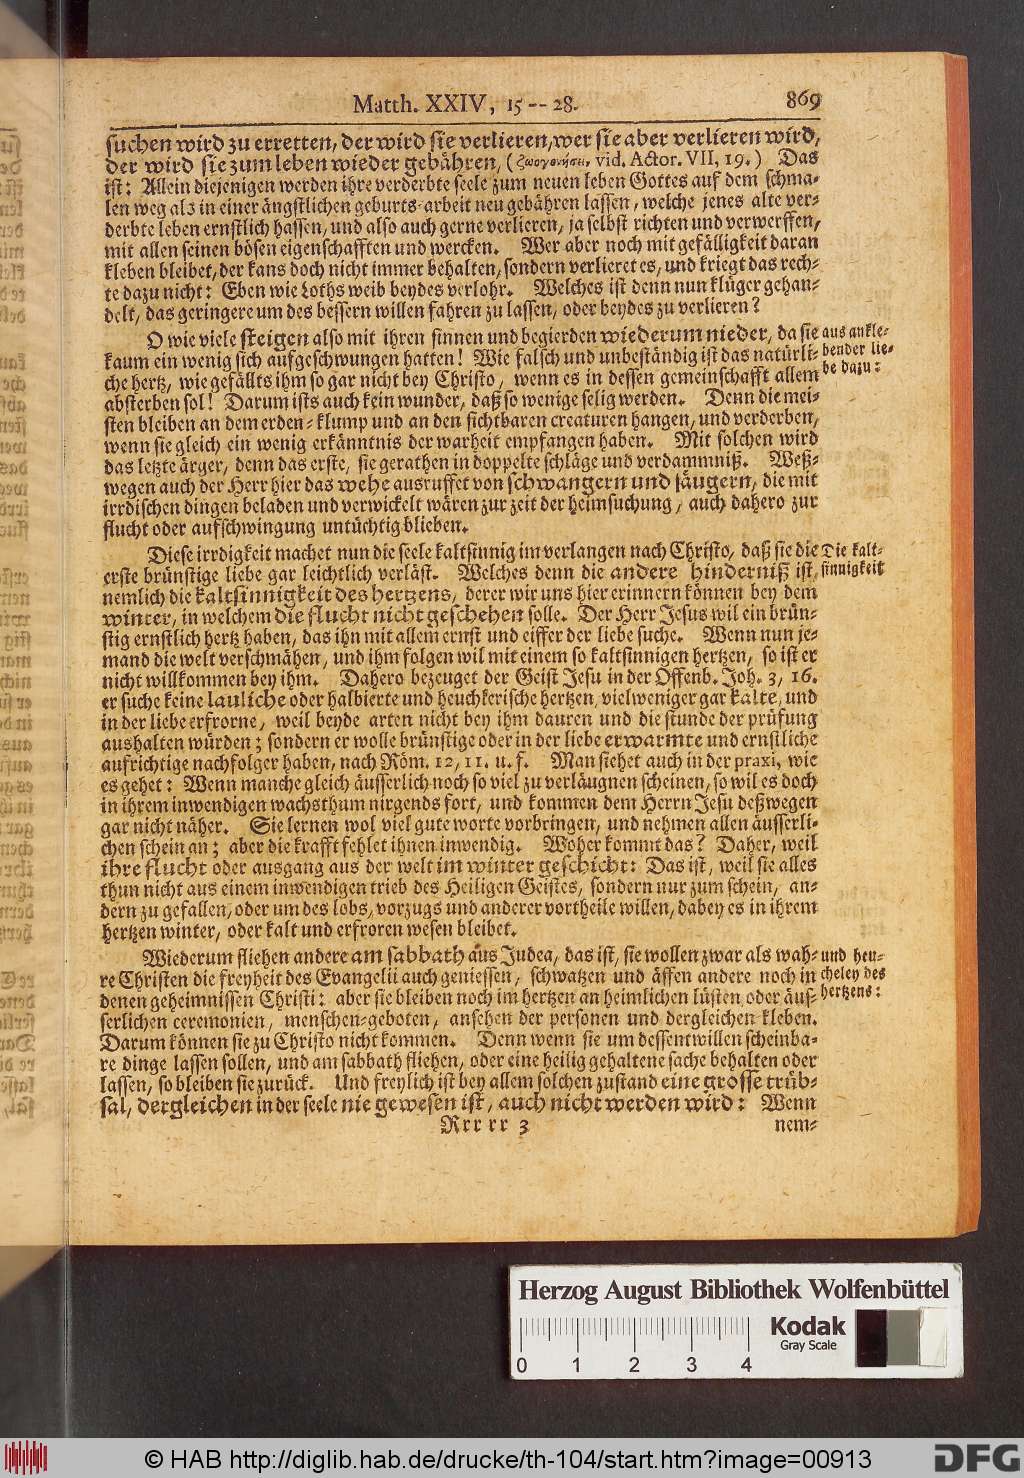 Matth. XXIV, 15 -- 28. 869
suchen wird zu erretten, der wird sie verlieren, wer sie aber verlieren wird,
der wird sie zum leben wieder gebähren, (ζωογονήσει, vid. Actor. VII, 19.) Das
ist: Allein diejenigen werden ihre verderbte seele zum neuen leben Gottes auf dem schma-
len weg als in einer ängstlichen geburts-arbeit neu gebähren lassen, welche jenes alte ver-
derbte leben ernstlich hassen, und also auch gerne verlieren, ja selbst richten und verwerffen,
mit allen seinen bösen eigenschafften und wercken. Wer aber noch mit gefälligkeit daran
kleben bleibet, der kans doch nicht immer behalten, sondern verlieret es, und kriegt das rech-
te dazu nicht: Eben wie Loths weib beydes verlohr. Welches ist denn nun klüger gehan-
delt, das geringere um des bessern willen fahren zu lassen, oder beydes zu verlieren?
O wie viele steigen also mit ihren sinnen und begierden wiederum nieder, da sie
kaum ein wenig sich aufgeschwungen hatten! Wie falsch und unbeständig ist das natürli-
che hertz, wie gefällts ihm so gar nicht bey Christo, wenn es in dessen gemeinschafft allem
absterben sol! Darum ists auch kein wunder, daß so wenige selig werden. Denn die mei-
sten bleiben an dem erden-klump und an den sichtbaren creaturen hangen, und verderben,
wenn sie gleich ein wenig erkänntnis der warheit empfangen haben. Mit solchen wird
das letzte ärger, denn das erste, sie gerathen in doppelte schläge und verdammniß. Weß-
wegen auch der Herr hier das wehe ausruffet von schwangern und säugern, die mit
irrdischen dingen beladen und verwickelt wären zur zeit der heimsuchung, auch dahero zur
flucht oder aufschwingung untüchtig blieben.
aus ankle-
bender lie-
be dazu:
Diese irrdigkeit machet nun die seele kaltsinnig im verlangen nach Christo, daß sie die
erste brünstige liebe gar leichtlich verläst. Welches denn die andere hinderniß ist,
nemlich die kaltsinnigkeit des hertzens, derer wir uns hier erinnern können bey dem
winter, in welchem die flucht nicht geschehen solle. Der Herr Jesus wil ein brün-
stig ernstlich hertz haben, das ihn mit allem ernst und eiffer der liebe suche. Wenn nun je-
mand die welt verschmähen, und ihm folgen wil mit einem so kaltsinnigen hertzen, so ist er
nicht willkommen bey ihm. Dahero bezeuget der Geist Jesu in der Offenb. Joh. 3, 16.
er suche keine lauliche oder halbierte und heuchlerische hertzen, vielweniger gar kalte, und
in der liebe erfrorne, weil beyde arten nicht bey ihm dauren und die stunde der prüfung
aushalten würden; sondern er wolle brünstige oder in der liebe erwarmte und ernstliche
aufrichtige nachfolger haben, nach Röm. 12, 11. u. f. Man siehet auch in der praxi, wie
es gehet: Wenn manche gleich äusserlich noch so viel zu verläugnen scheinen, so wil es doch
in ihrem inwendigen wachsthum nirgends fort, und kommen dem Herrn Jesu deßwegen
gar nicht näher. Sie lernen wol viel gute worte vorbringen, und nehmen allen äusserli-
chen schein an; aber die krafft fehlet ihnen inwendig. Woher kommt das? Daher, weil
ihre flucht oder ausgang aus der welt im winter geschicht: Das ist, weil sie alles
thun nicht aus einem inwendigen trieb des Heiligen Geistes, sondern nur zum schein, an-
dern zu gefallen, oder um des lobs, vorzugs und anderer vortheile willen, dabey es in ihrem
hertzen winter, oder kalt und erfroren wesen bleibet.
Die kalt-
sinnigkeit
Wiederum fliehen andere am sabbath aus Judea, das ist, sie wollen zwar als wah-
re Christen die freyheit des Evangelii auch geniessen, schwatzen und äffen andere noch in
denen geheimnissen Christi: aber sie bleiben noch im hertzen an heimlichen lüsten oder äus-
serlichen ceremonien, menschen-geboten, ansehen der personen und dergleichen kleben.
Darum können sie zu Christo nicht kommen. Denn wenn sie um dessentwillen scheinba-
re dinge lassen sollen, und am sabbath fliehen, oder eine heilig gehaltene sache behalten oder
lassen, so bleiben sie zurück. Und freylich ist bey allem solchen zustand eine grosse trüb-
sal, dergleichen in der seele nie gewesen ist, auch nicht werden wird: Wenn
und heu-
cheley des
hertzens:
Rrr rr 3 nem-
Herzog August Bibliothek Wolfenbüttel
0 1 2 3 4
Kodak
Gray Scale
© HAB http://diglib.hab.de/drucke/th-104/start.htm?image=00913
DFG